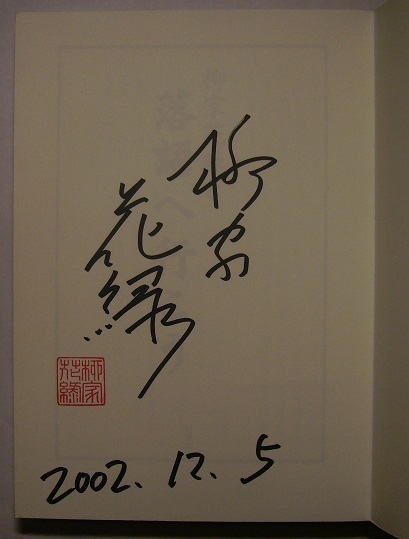 柳家
花緑
柳家
花緑
2002.12.5